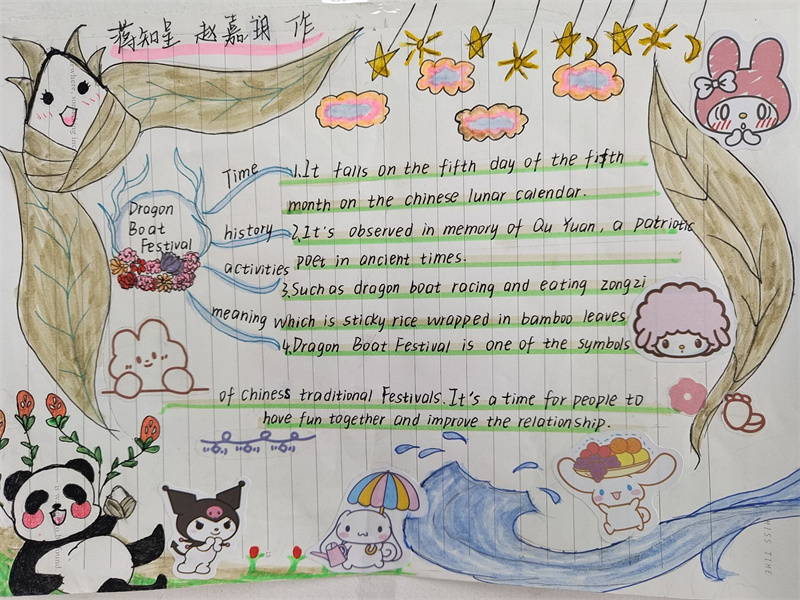 蒋知呈 赵嘉玥 作
Dragon
Boat
Festival
Time
history
activities
meaning
1.It falls on the fifth day of the fifth
month on the chinese lunar calendar.
2.It's observed in memory of Qu Yuan, a patriotic
poet in ancient times.
3.Such as dragon boat racing and eating zongzi
which is sticky rice wrapped in bamboo leaves
4.Dragon Boat Festival is one of the symbols
of chiness traditional Festivals. It's a time for people to
have fun together and improve the relationship.